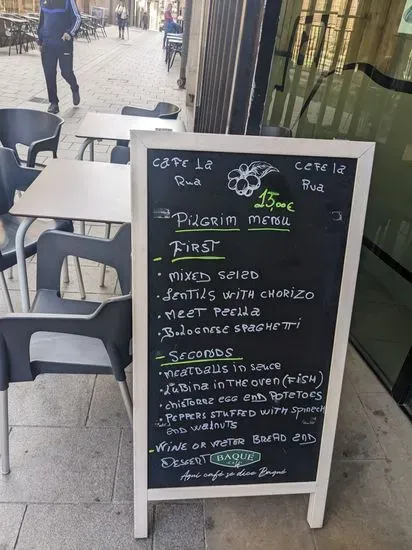 CAFE La Rua
CEFE la Rua
13'00€
PiLGRIM MENU
FIRST
• MIXED SELED
• LENTILS WITH CHORIZO
• MEET PEELLA
• BOLOGNESE SPAGHETTI
- SECONDS
• MEATBALLS IN SEUCE
• LUBINA IN THE OVEN (FISH)
• CHISTORRE EGG END POTETOES
• PEPPERS STUFFED WITH SPINECH
END WALNUTS
- WINE OR WETER BREAD END
DESSERT BAQUÉ
Aquí café se dice Baqué